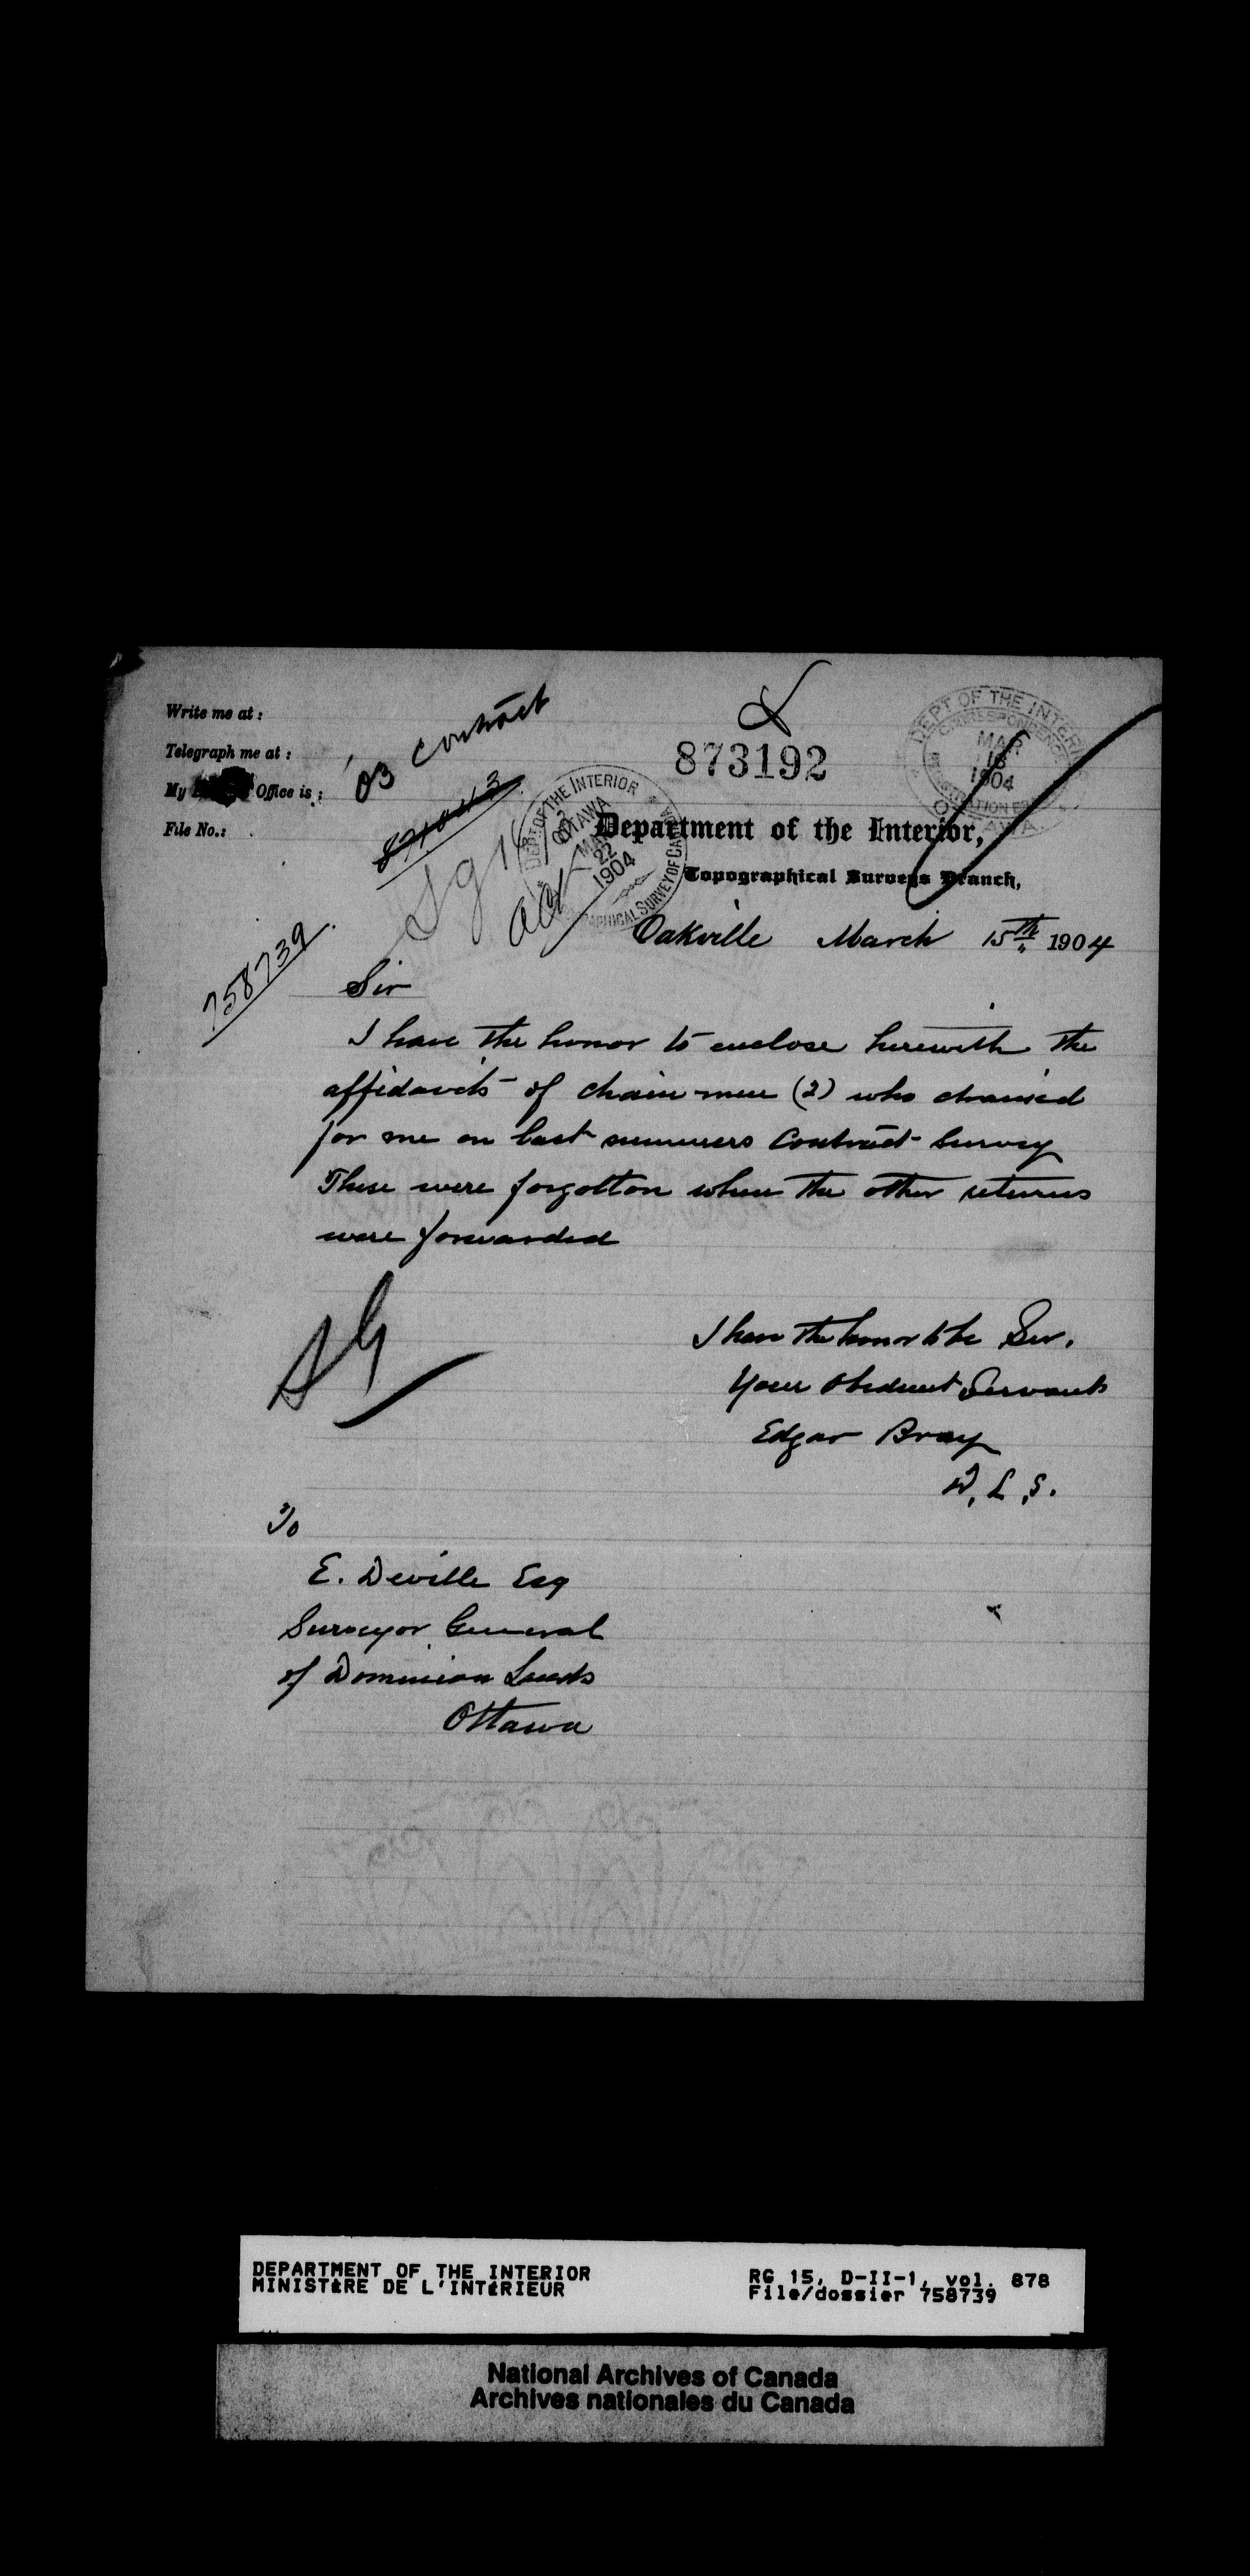 Write me at:
Telegraph me at:
My Office is:
File No.:
'03 contract
873192
DEPT OF THE INTERIOR
MAR
1904
DEPT. OF THE INTERIOR
OTTAWA
MAR
22
1904
TOPOGRAPHICAL SURVEY OF CANADA
Department of the Interior,
Topographical Surveys Branch,
Oakville March 15th 1904
758739
Sir
I have the honor to enclose herewith the
affidavits of chain men (2) who chained
for me on last summers Contract Survey
These were forgotton when the other returns
were forwarded
SG
I have the honor to be Sir,
Your Obedient Servant
Edgar Bray
D.L.S.
To
E. Deville Esq
Surveyor General
of Dominion Lands
Ottawa
DEPARTMENT OF THE INTERIOR
MINISTÈRE DE L'INTÉRIEUR
RG 15, D-II-1, vol. 878
File/dossier 758739
National Archives of Canada
Archives nationales du Canada